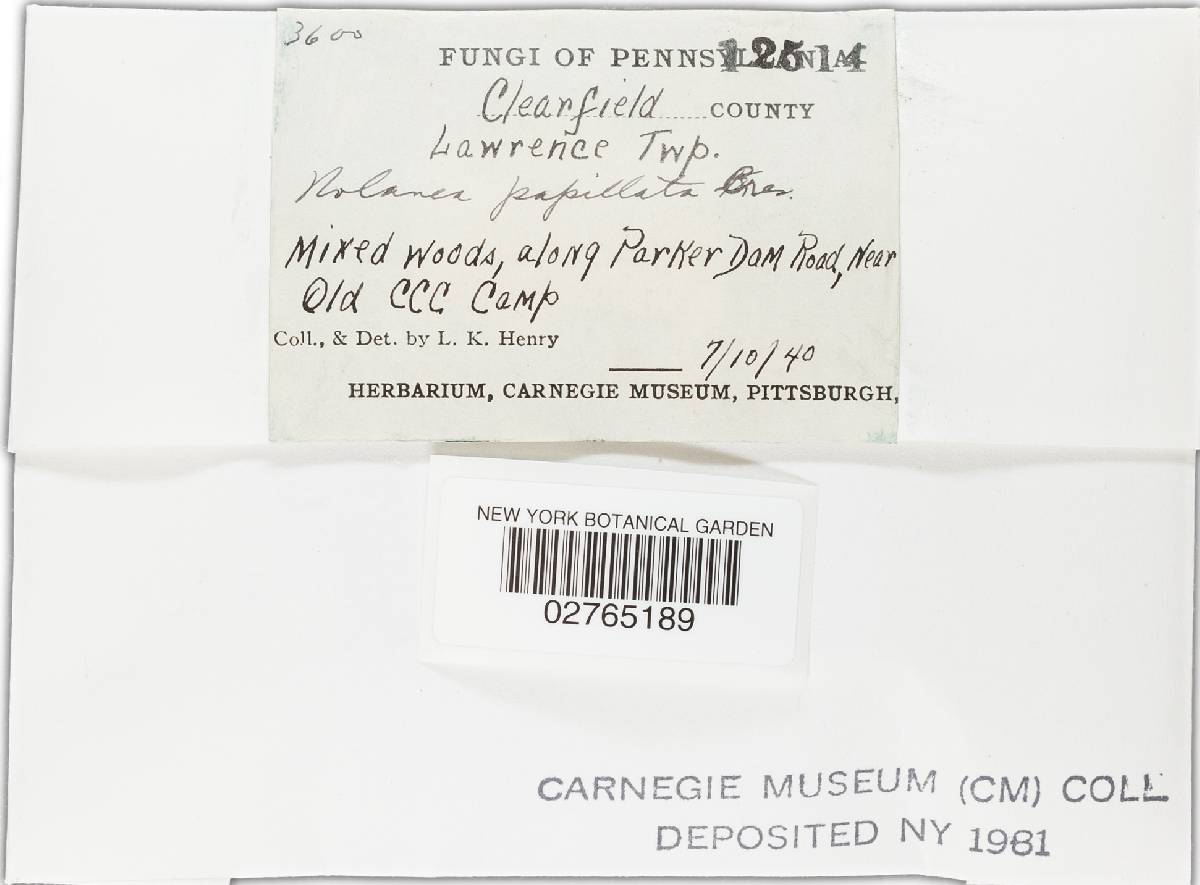 3600
FUNGI OF PENNSYLVANIA 12514
Clearfield COUNTY
Lawrence Twp.
Nolanea papillata Bres.
Mixed Woods, along Parker Dam Road, Near
Old CCC Camp
Coll., & Det. by L. K. Henry
7/10/40
HERBARIUM, CARNEGIE MUSEUM, PITTSBURGH,
NEW YORK BOTANICAL GARDEN
02765189
CARNEGIE MUSEUM (CM) COLL
DEPOSITED NY 1981